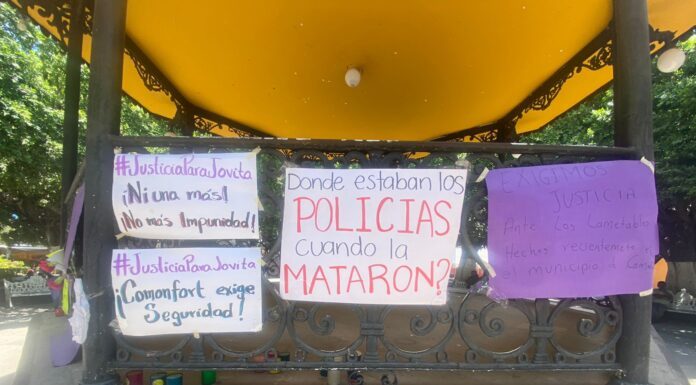 #JusticiaParaJovita
¡Ni una más!
¡No más Impunidad!
#JusticiaParaJovita
¡Comonfort exige
Seguridad!
Donde estaban los
POLICIAS
cuando la
MATARON?
EXIGIMOS
JUSTICIA
Ante los Lamentables
Hechos recientemente
el municipio